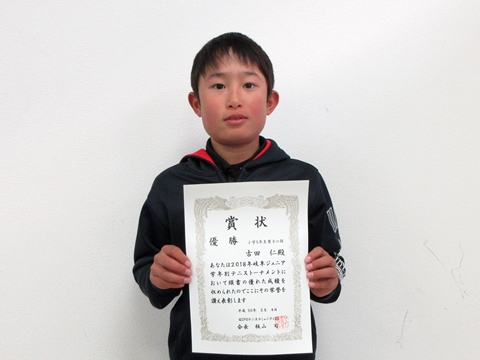 賞状
優勝 小学5年生男子の部
吉田 仁殿
あなたは2018年岐阜ジュニア
学年別テニストーナメントに
おいて頭書の優れた成績を
収められたのでここにその栄誉を
讃え表彰します
平成30年3月4日
会長 横山 司